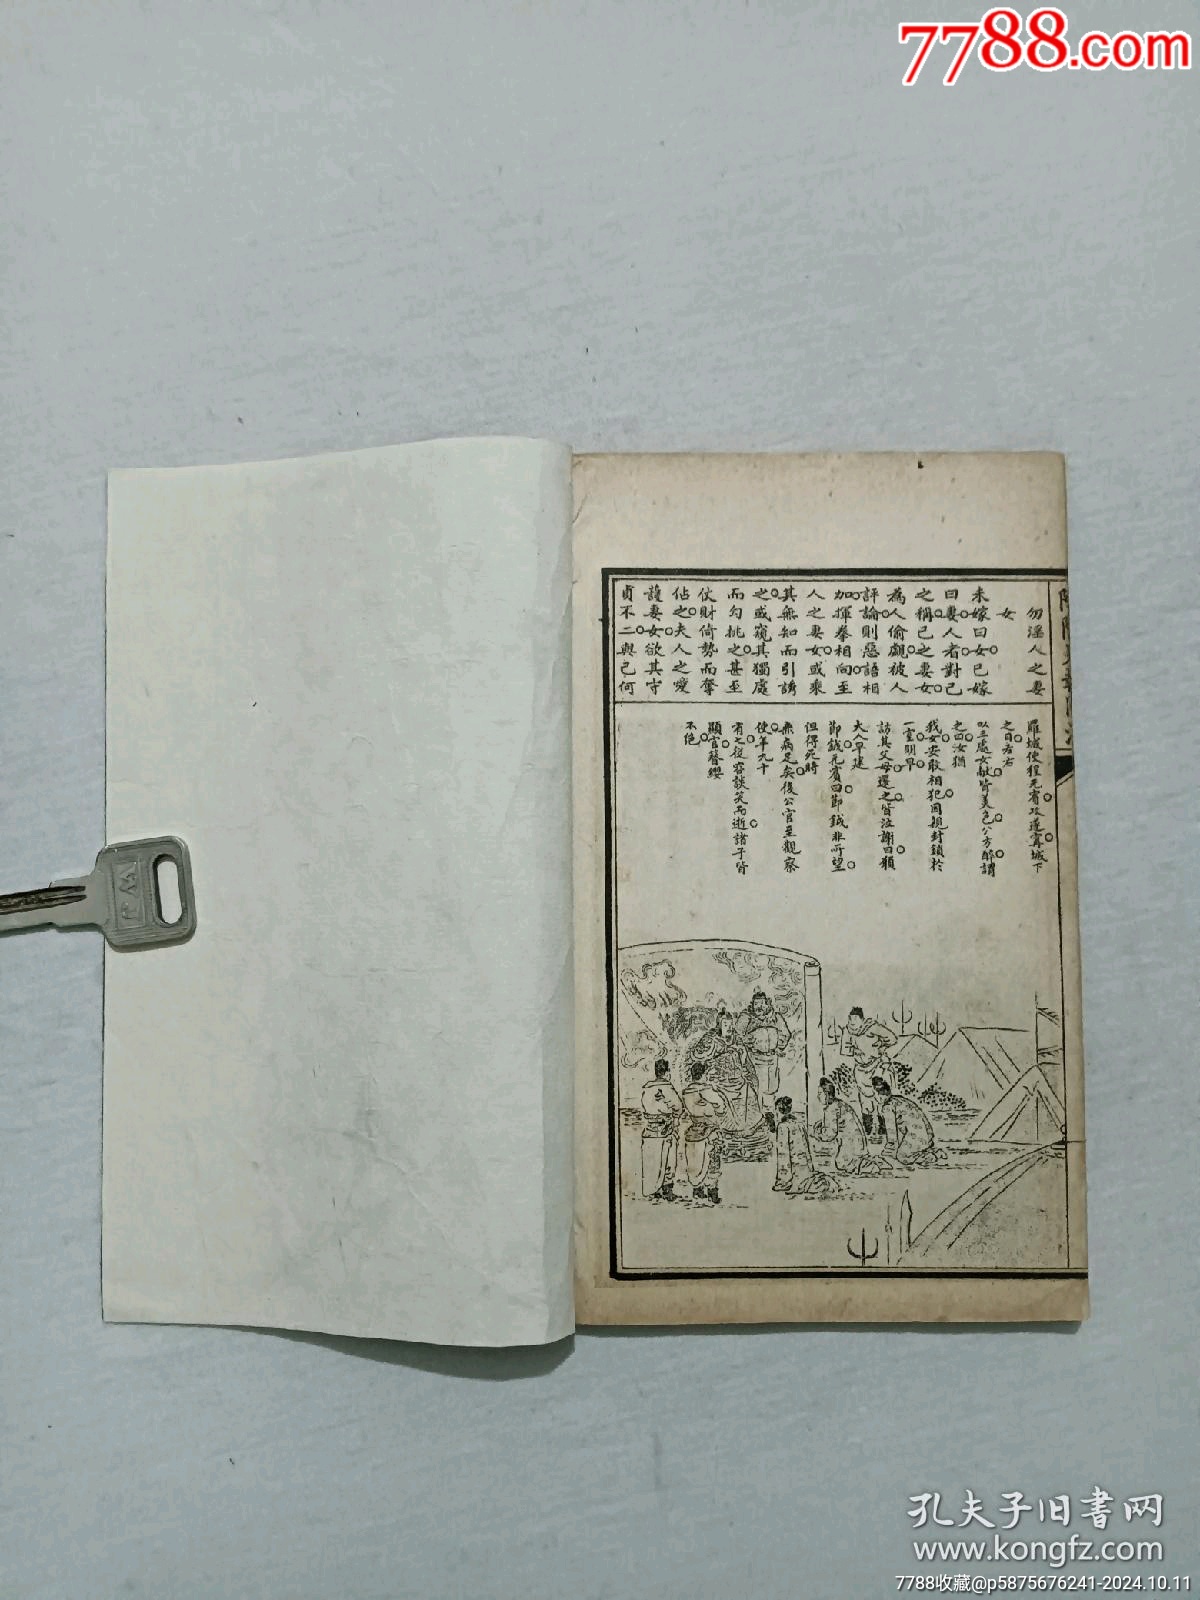 7788.com
勿淫人之妻
女
未嫁曰女已嫁
曰妻人者對己
之稱己之妻女
為人偷覷被人
評論則惡語相
加揮拳相向至
人之妻女或乘
其無知而引誘
之或窺其獨處
而勾挑之甚至
仗財倚勢而奪
佔之夫人之愛
護妻女欲其守
貞不二與己何
羅城使程元賓攻遂寧城下
之日左右
以三處女獻皆美色公方醉謂
之曰汝猶
我女安敢相犯因親封鎖於
一室明早
訪其父母還之皆泣謝曰願
大人早建
節鉞元賓曰節鉞非所望
但得死時
無病足矣後公官至觀察
使年九十
有之從容談笑而逝諸子皆
顯官簪纓
不絕
孔夫子旧書网
www.kongfz.com
7788收藏@p5875676241-2024.10.11